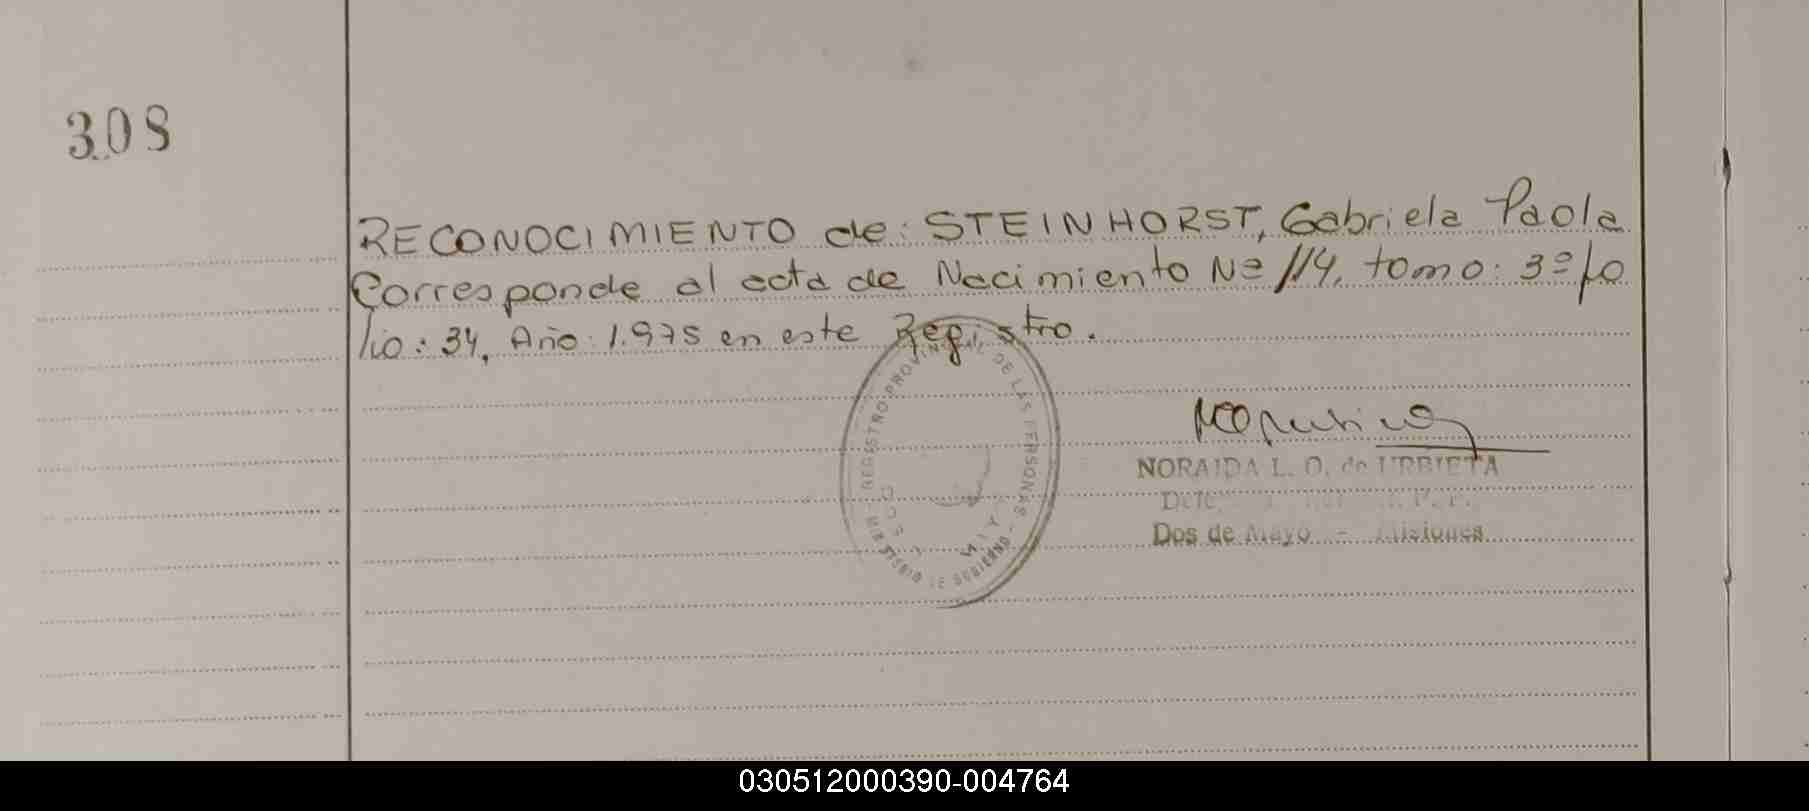 308
RECONOCIMIENTO de: STEINHORST, Gabriela Paola
Corresponde al acta de Nacimiento Nº 114, tomo: 3º fo
lio: 34, Año: 1.975 en este Registro.
REGISTRO PROVINCIAL DE LAS PERSONAS
MINISTERIO DE GOBIERNO
NORAIDA L. O. de URBIETA
Dos de Mayo - Misiones
030512000390-004764